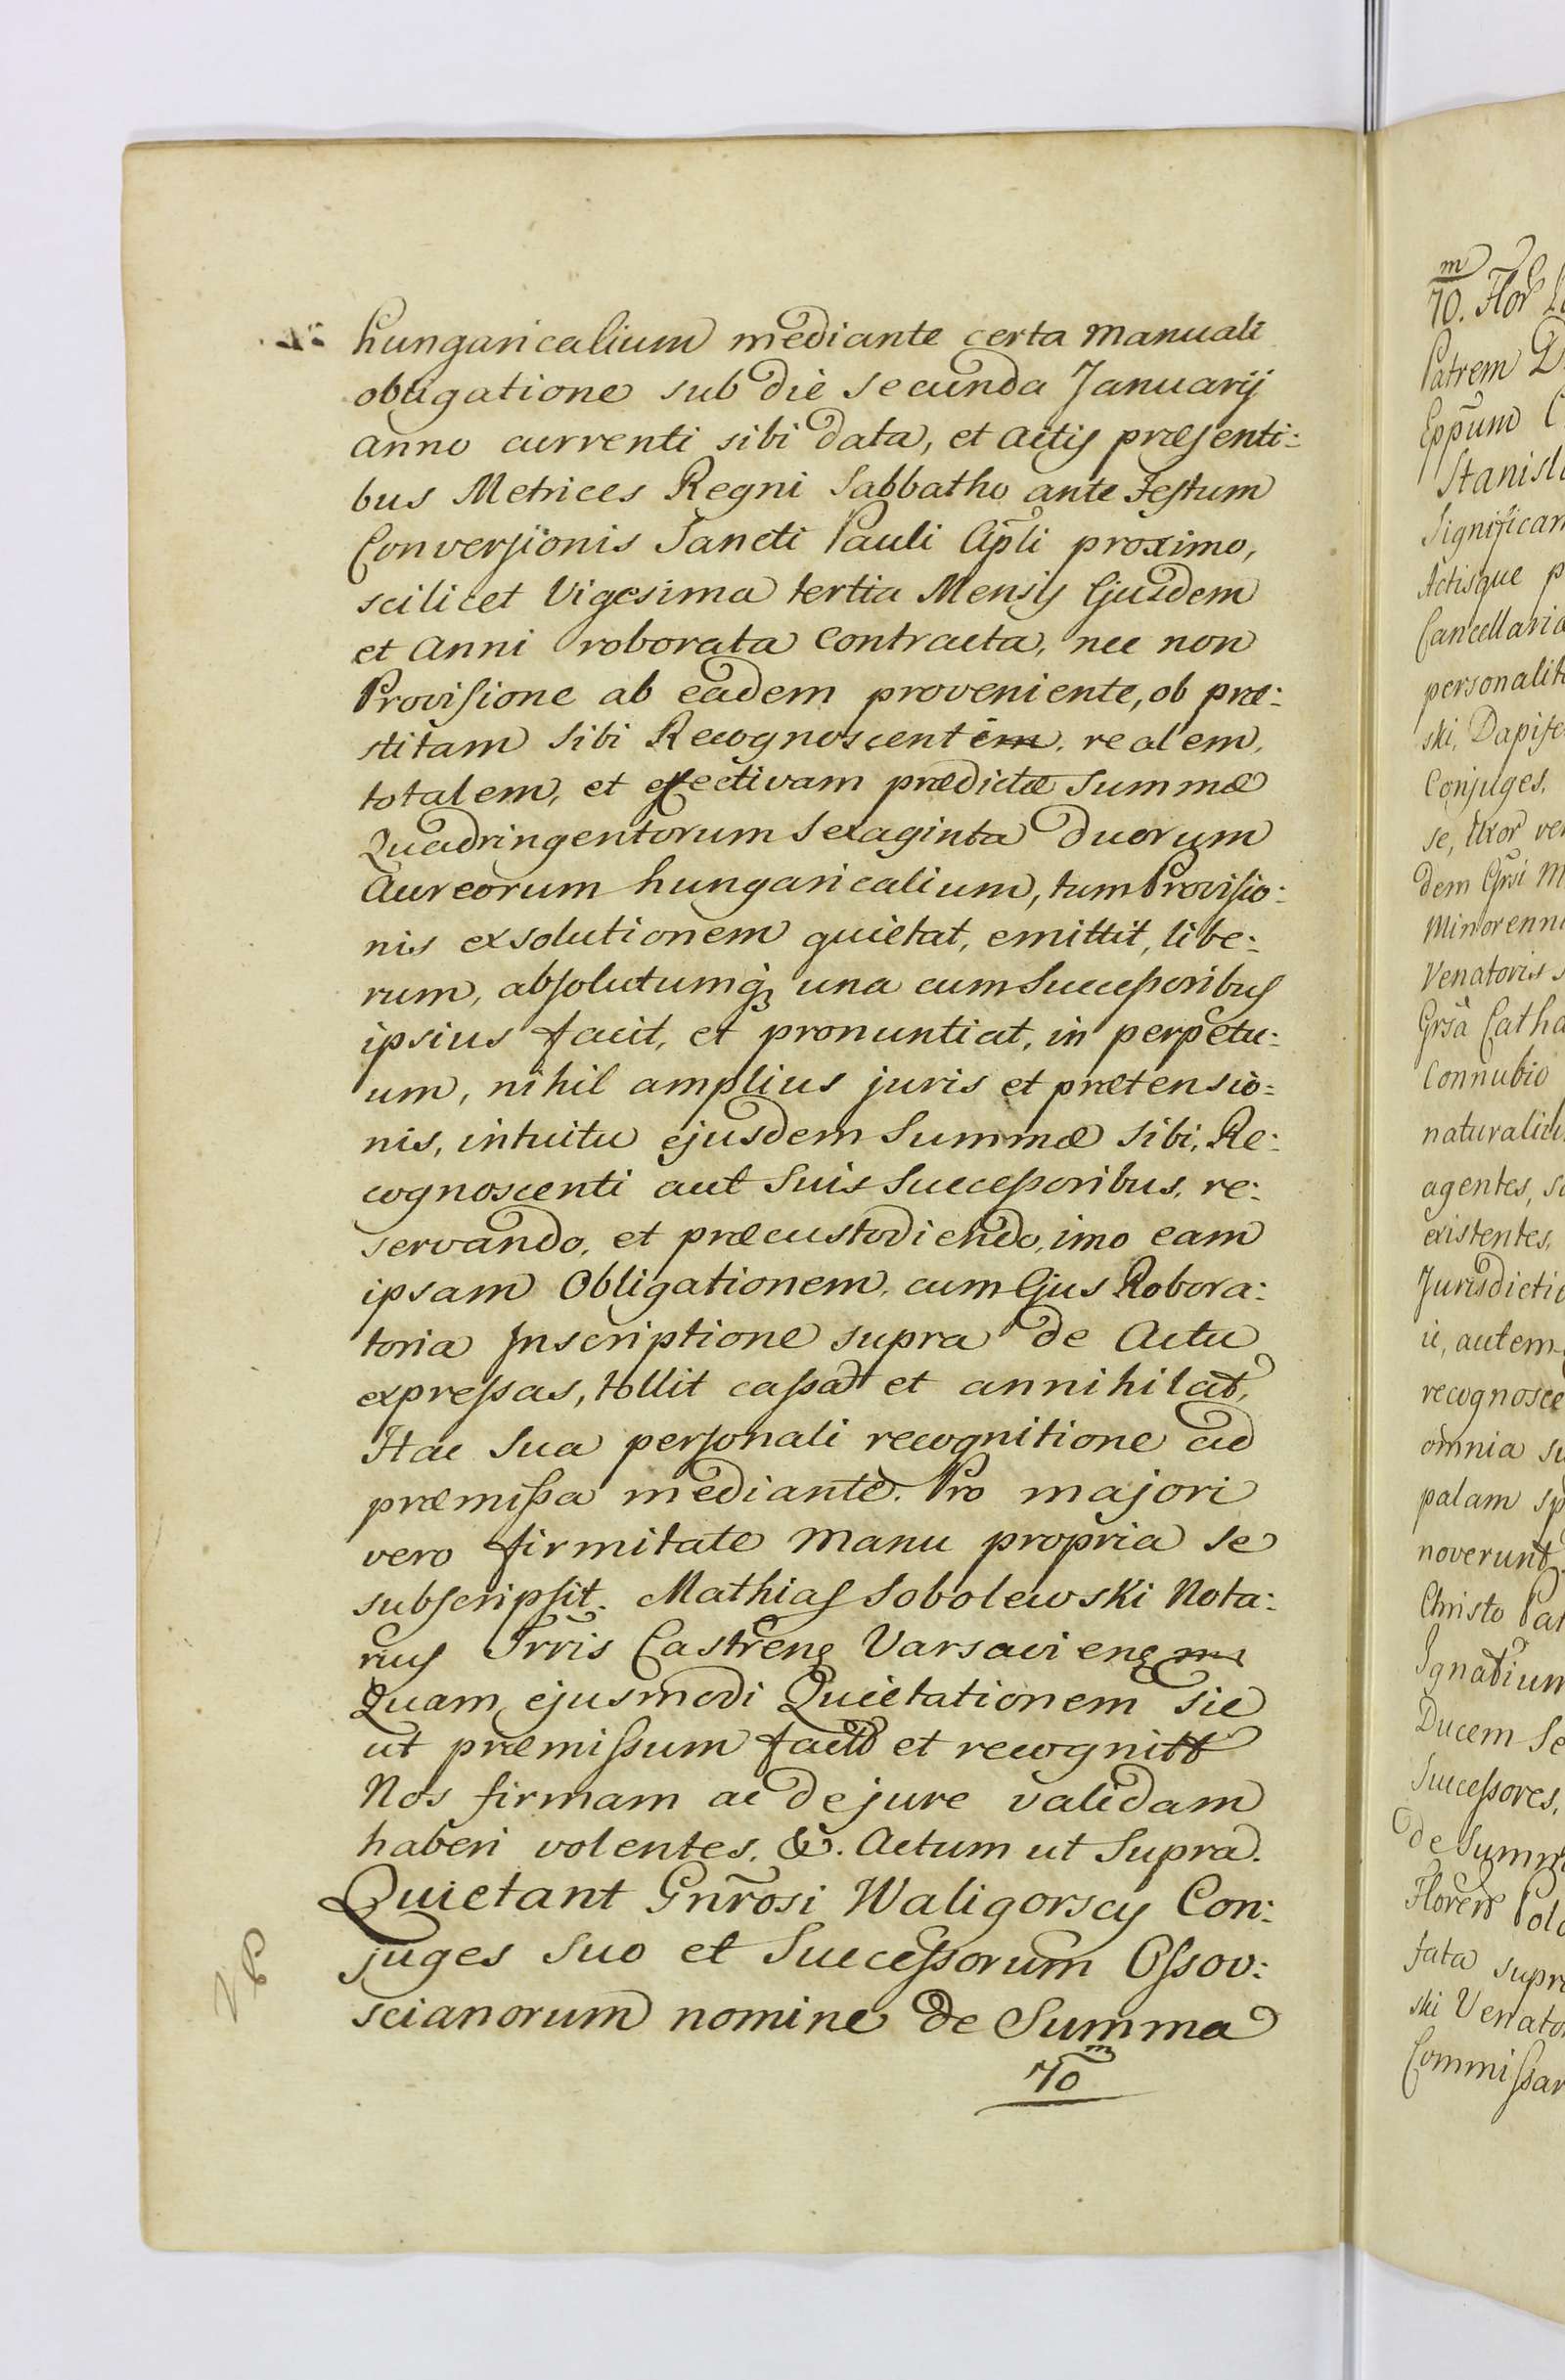 hungaricalium mediante certa manuali
obligatione sub die secunda Januarij
anno currenti sibi data, et actis præsenti:
bus Metrices Regni Sabbatho ante Festum
Conversionis Sancti Pauli Apli proximo,
scilicet Vigesima tertia Mensis Ejusdem
et Anni roborata contracta, nec non
Provisione ab eadem proveniente, ob præ:
stitam sibi Recognoscentem, realem,
totalem, et effectivam prædictæ Summæ
Quadringentorum Sexaginta Duorum
Aureorum hungaricalium, tum Provisio:
nis exsolutionem quietat, emittit, libe:
rum, absolutumq; una cum Successoribus
ipsius facit, et pronuntiat, in perpetu:
um, nihil amplius juris et prætensio:
nis, intuitu ejusdem Summæ sibi, Re:
cognoscenti aut Suis Successoribus, re:
servando, et præcustodiendo, imo eam
ipsam Obligationem, cum Ejus Robora:
toria Inscriptione supra de Actu
expressas, tollit cassat et annihilat,
Hac Sua personali recognitione ad
præmissa mediante. Pro majori
vero firmitate manu propria se
subscripsit. Mathias Sobolewski Nota:
rius Trris Castrens Varsaviens mp
Quam ejusmodi Quietationem sic
ut præmissum fact et recognit
Nos firmam ac de jure validam
haberi volentes. &. Actum ut Supra.
Quietant Gnrosi Waligorscy Con:
juges suo et Successorum Ossov:
scianorum nomine de Summa
70 m
m
70. Flor
Patrem
Eppum
Significan
Actisque p
Cancellaria
ski, Dapife
Conjuges,
se, Uxor
dem Grsi M
Minorenni
Venatoris
Grsa Catha
Connubio
agentes,
existentes,
ii, autem
recognosce
omnia
palam
noverunt
Christo
Ignatium
Ducem
Successores,
de Summ
ski Venato
Commissar